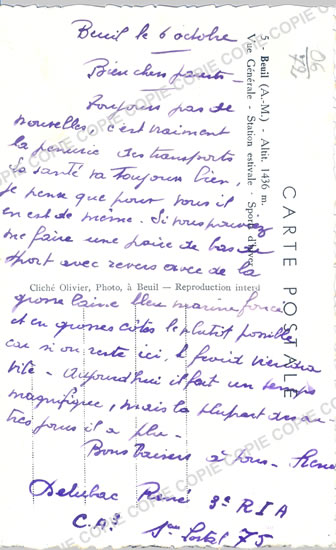 Beuil le 6 octobre
Bien chers parents,
Toujours pas de
nouvelles, c'est vraiment
la penurie des transports
La santé va toujours bien,
je pense que pour vous il
en est de même. Si vous pouvez
me faire une paire de bas de
sport avec revers avec de la
grosse laine bleu marine foncé
et en grosses côtes le plutôt possible
car si on reste ici, le froid viendra
vite - Aujourd'hui il fait un temps
magnifique, mais la plupart des au-
tres jours il a plu -
Bons baisers à tous - René
Delubac René 3e R I A
C.A.3 Sr Postal 75
06
72
5 Beuil (A.-M.) - Altit. 1436 m.
Vue Générale - Station estivale - Sports d'hiver
CARTE POSTALE
Cliché Olivier, Photo, à Beuil — Reproduction interd
COPIE COPIE COPIE COPIE COPIE COPIE
COPIE COPIE COPIE COPIE COPIE COPIE